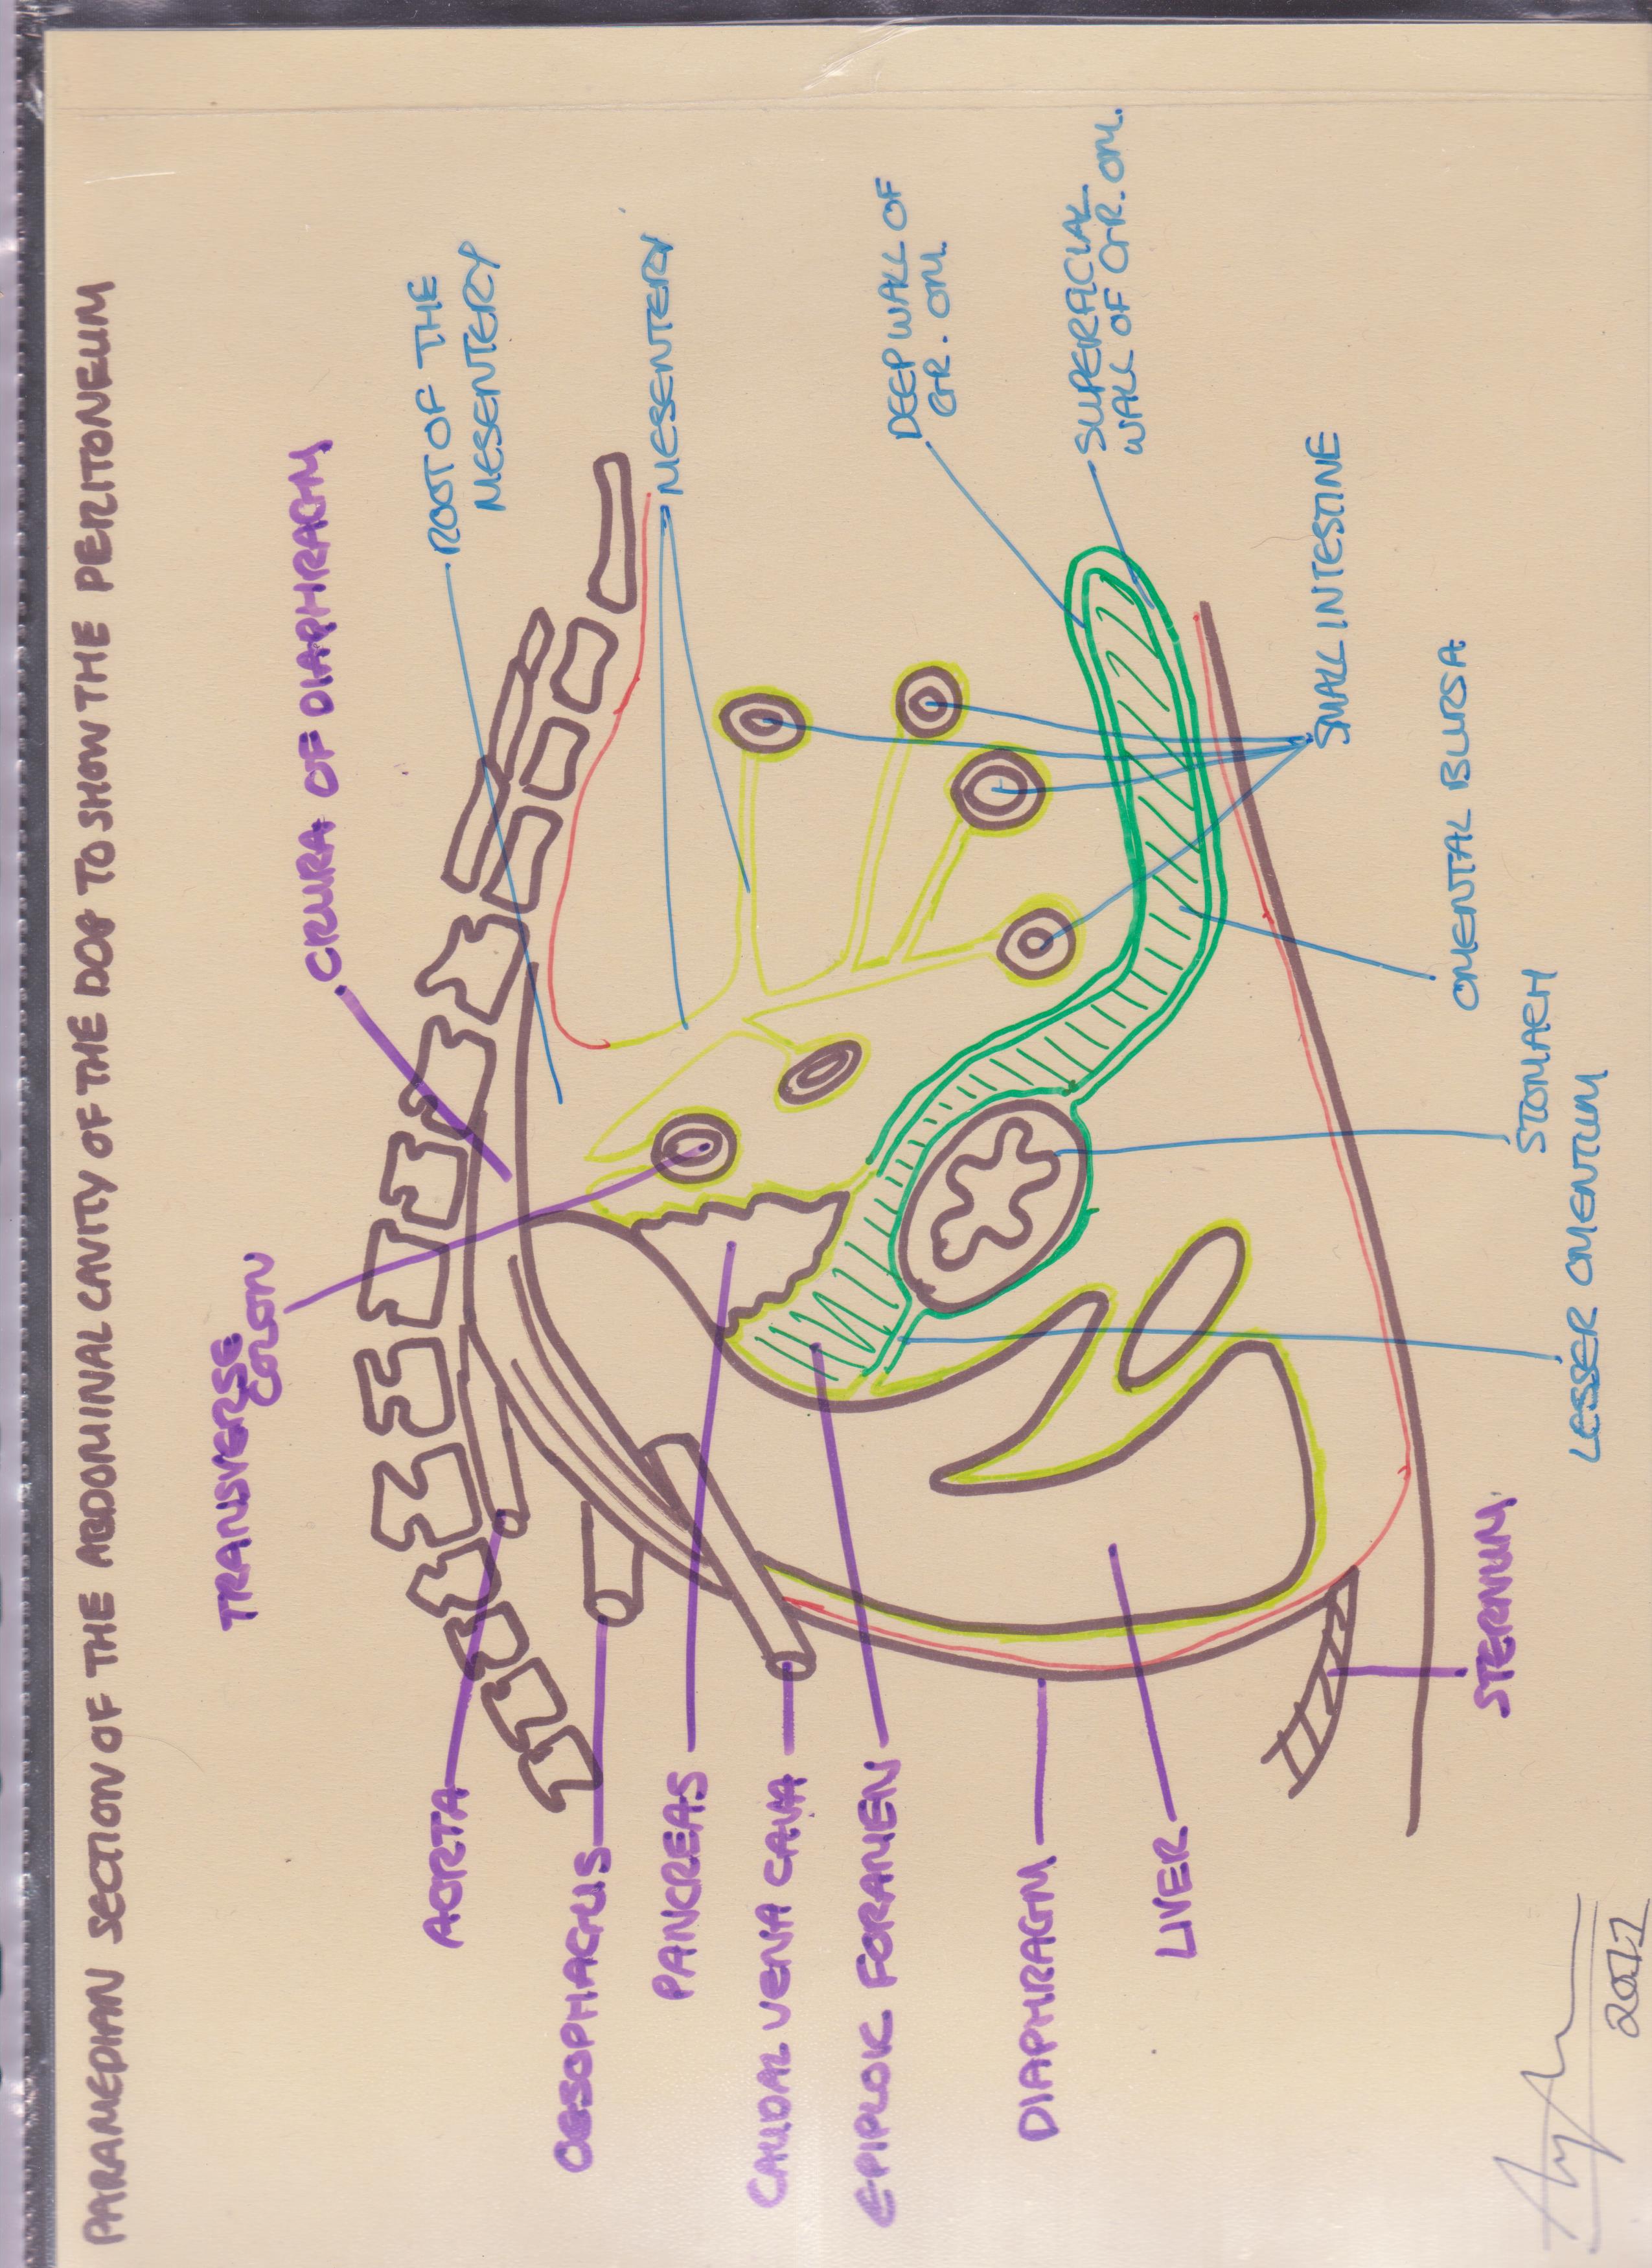 PARAMEDIAN SECTION OF THE ABDOMINAL CAVITY OF THE DOG TO SHOW THE PERITONEUM
TRANSVERSE
COLON
CRURA OF DIAPHRAGM
ROOT OF THE
MESENTERY
MESENTERY
DEEP WALL OF
GR. OM.
SUPERFICIAL
WALL OF GR. OM.
SMALL INTESTINE
OMENTAL BURSA
STOMACH
LESSER OMENTUM
AORTA
OESOPHAGUS
PANCREAS
CAUDAL VENA CAVA
EPIPLOIC FORAMEN
DIAPHRAGM
LIVER
STERNUM
2011